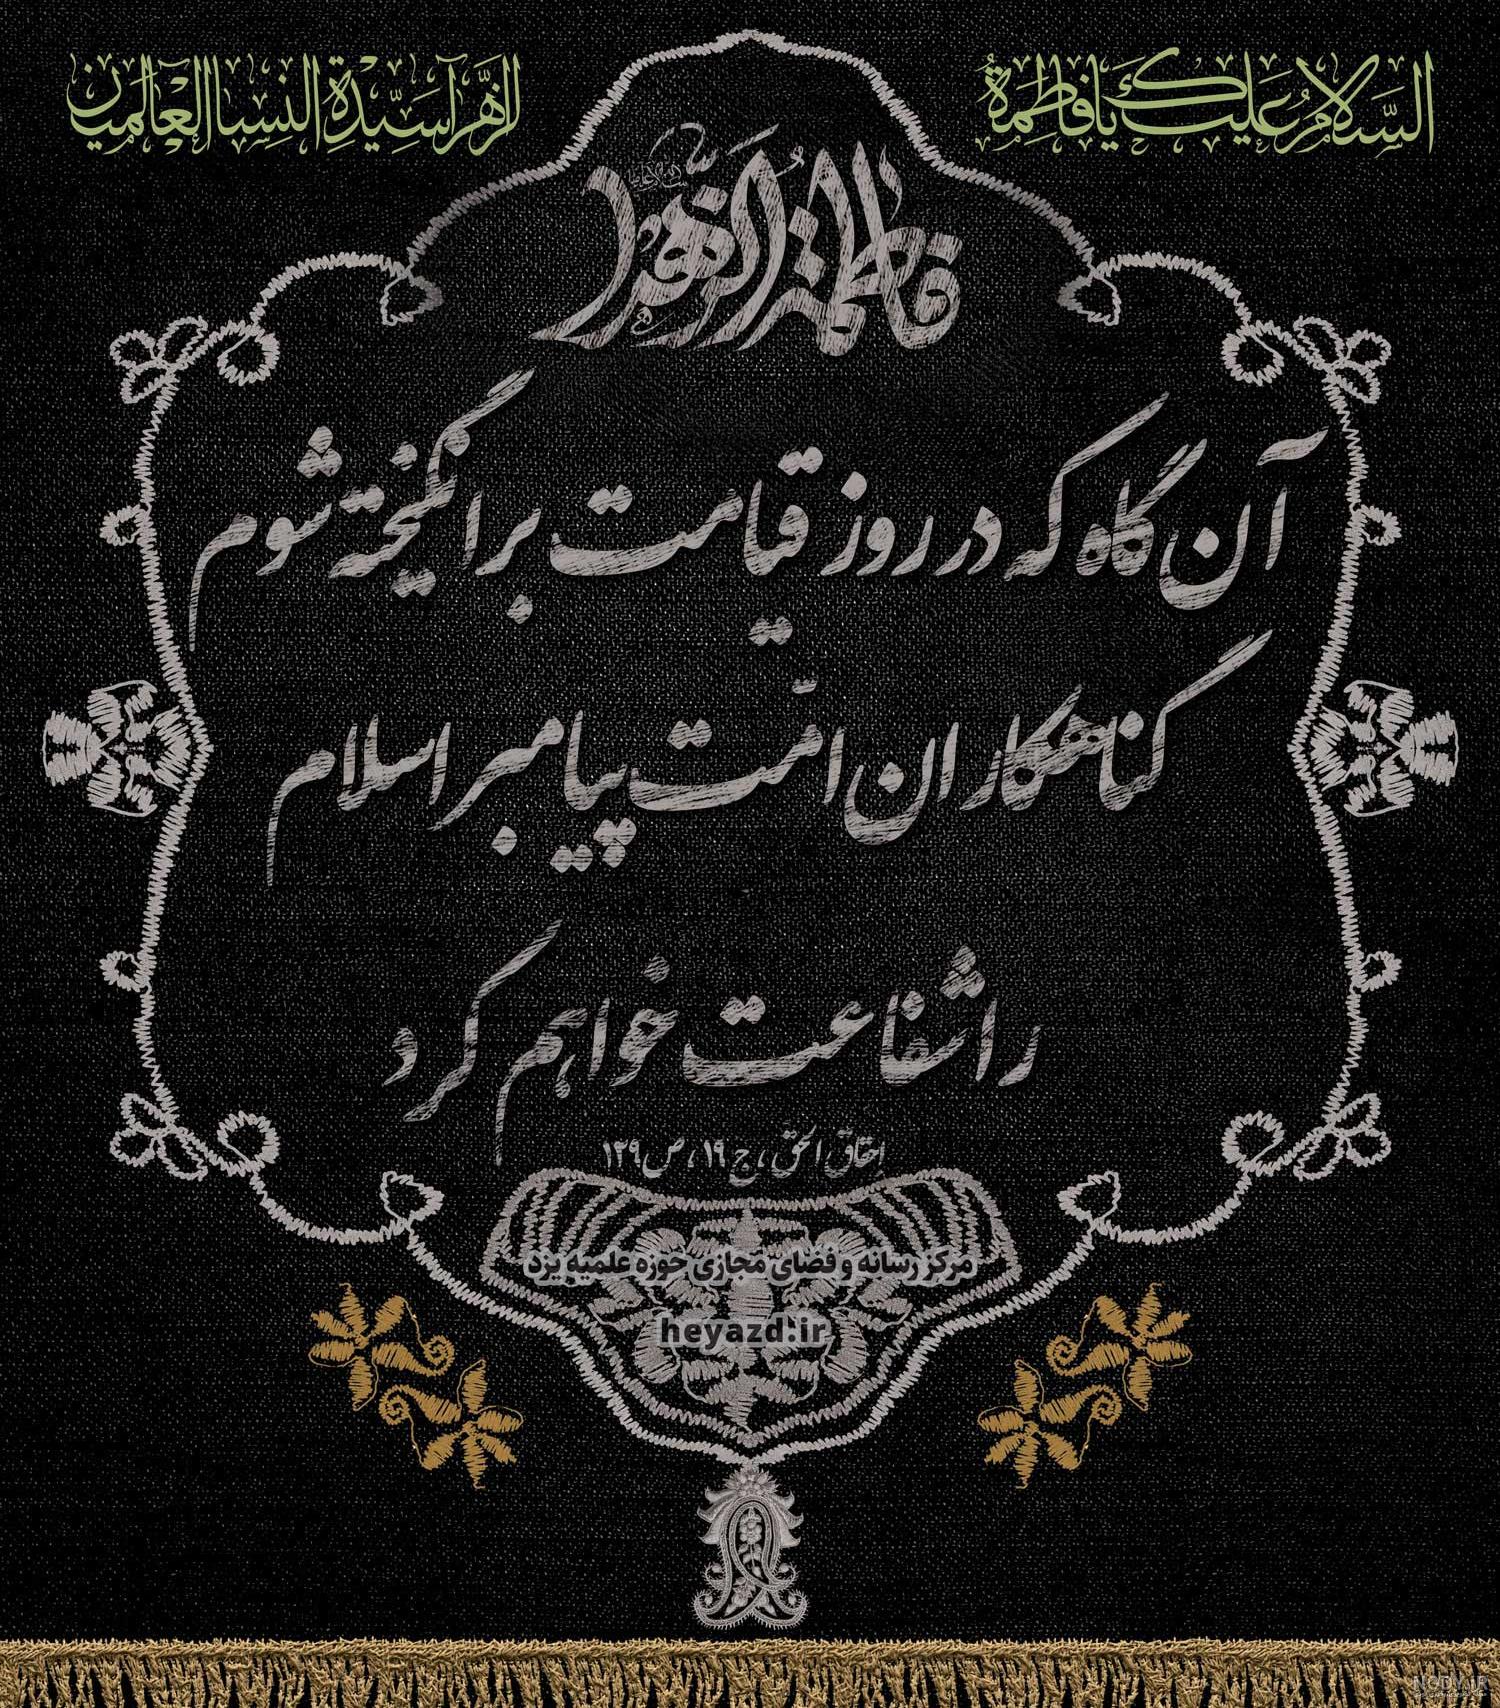 السَّلامُ عَلَیكَ یا فاطِمَةُ
الزَّهرا سَیِّدَةِ النِساالعالَمین
فاطمة الزهرا
علیهاالسلام
آن گاه که در روز قیامت برانگیخته شوم
گناهکاران امّت پیامبر اسلام
را شفاعت خواهم کرد
احقاق الحق، ج ۱۹، ص ۱۲۹
مرکز رسانه و فضای مجازی حوزه علمیه یزد
heyazd.ir
NODY.IR